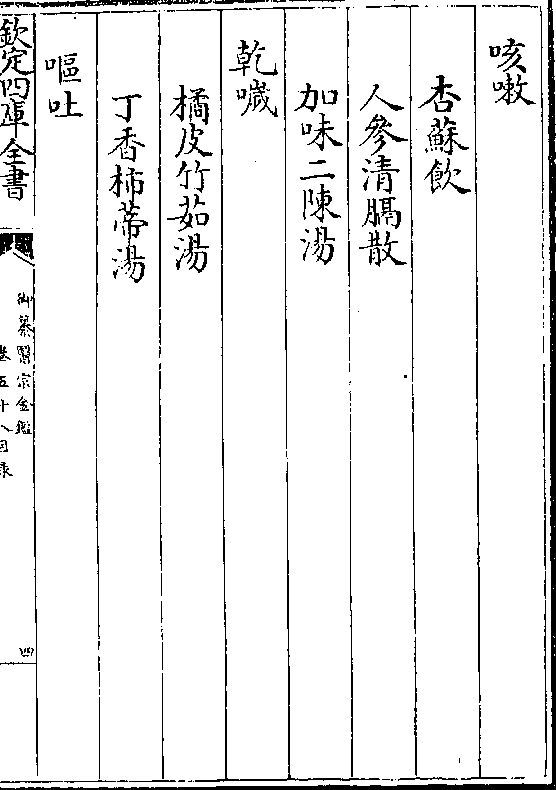 咳嗽
杏蘇飲
人參清膈散
加味二陳湯
乾噦
橘皮竹茹湯
丁香柿蒂湯
嘔吐
欽定四庫全書
御纂醫宗金鑑
卷五十八目錄
四